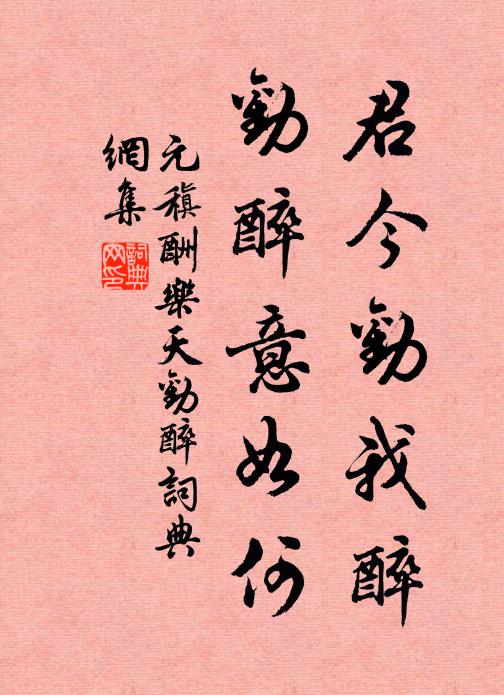 君今勸我醉
勸醉意如何
元稹酬樂天勸醉詞典
網集
詞典
网印